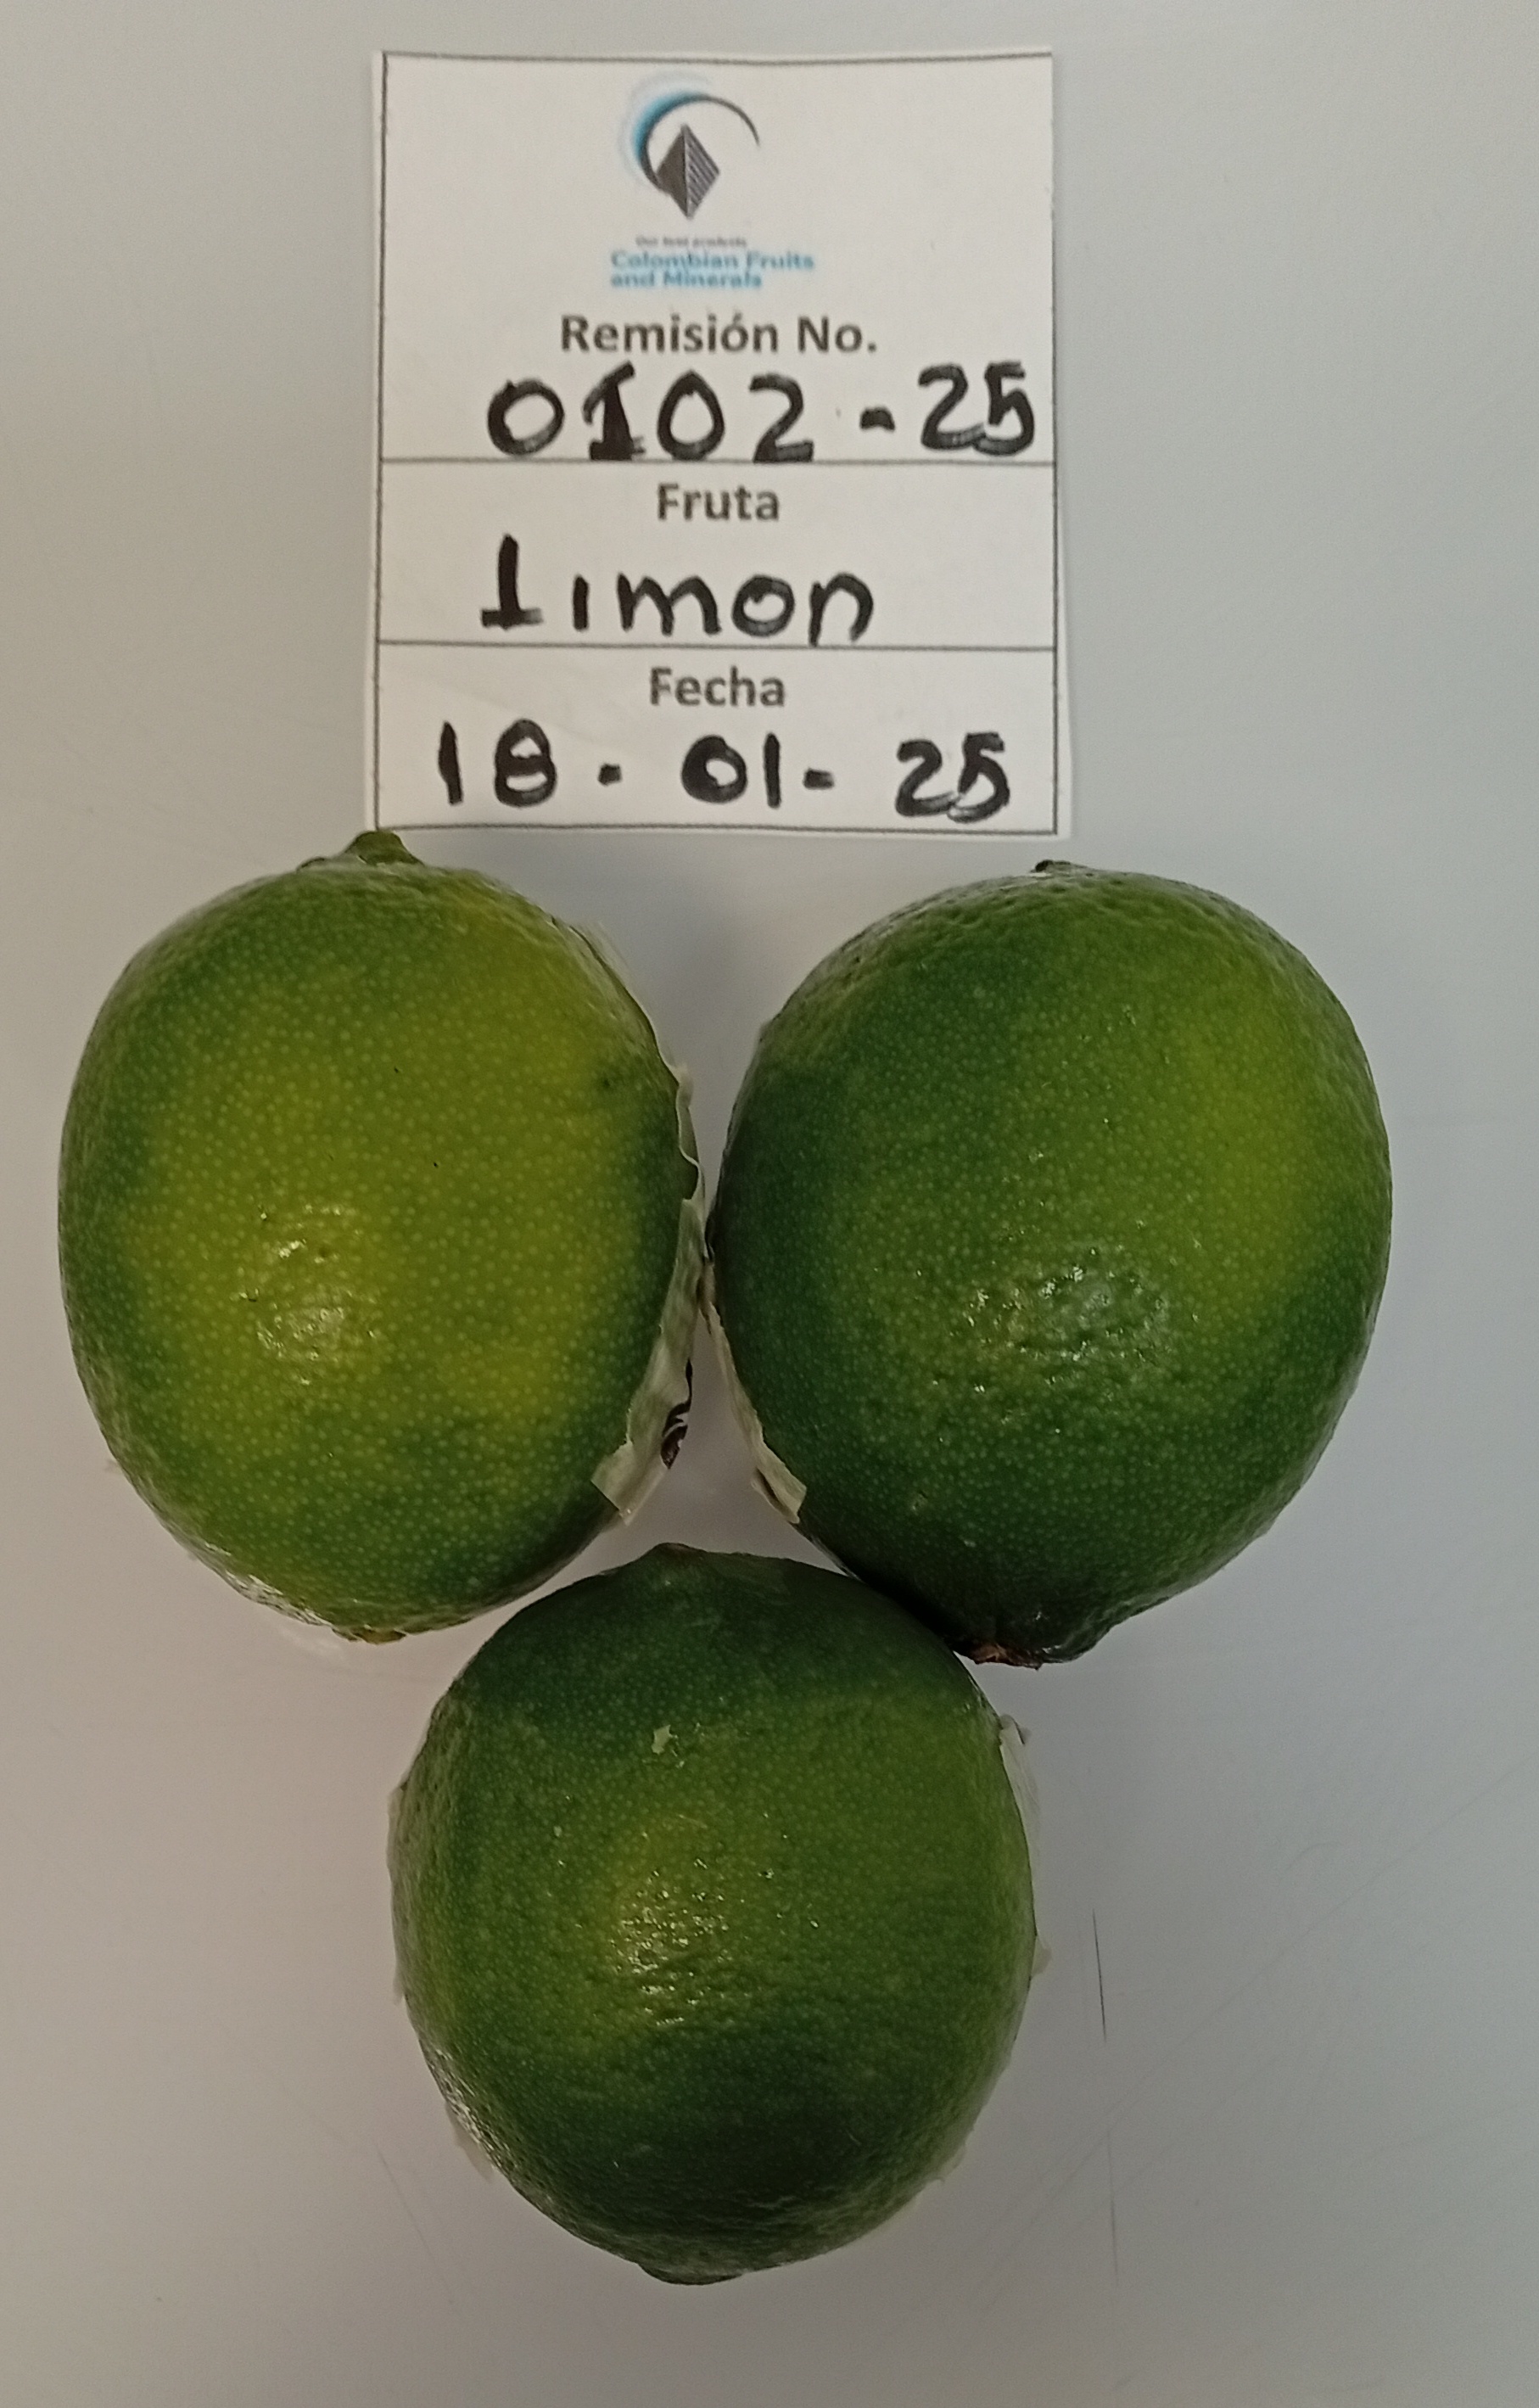 Our best products
Colombian Fruits
and Minerals
Remisión No.
0102-25
Fruta
Limon
Fecha
18-01-25